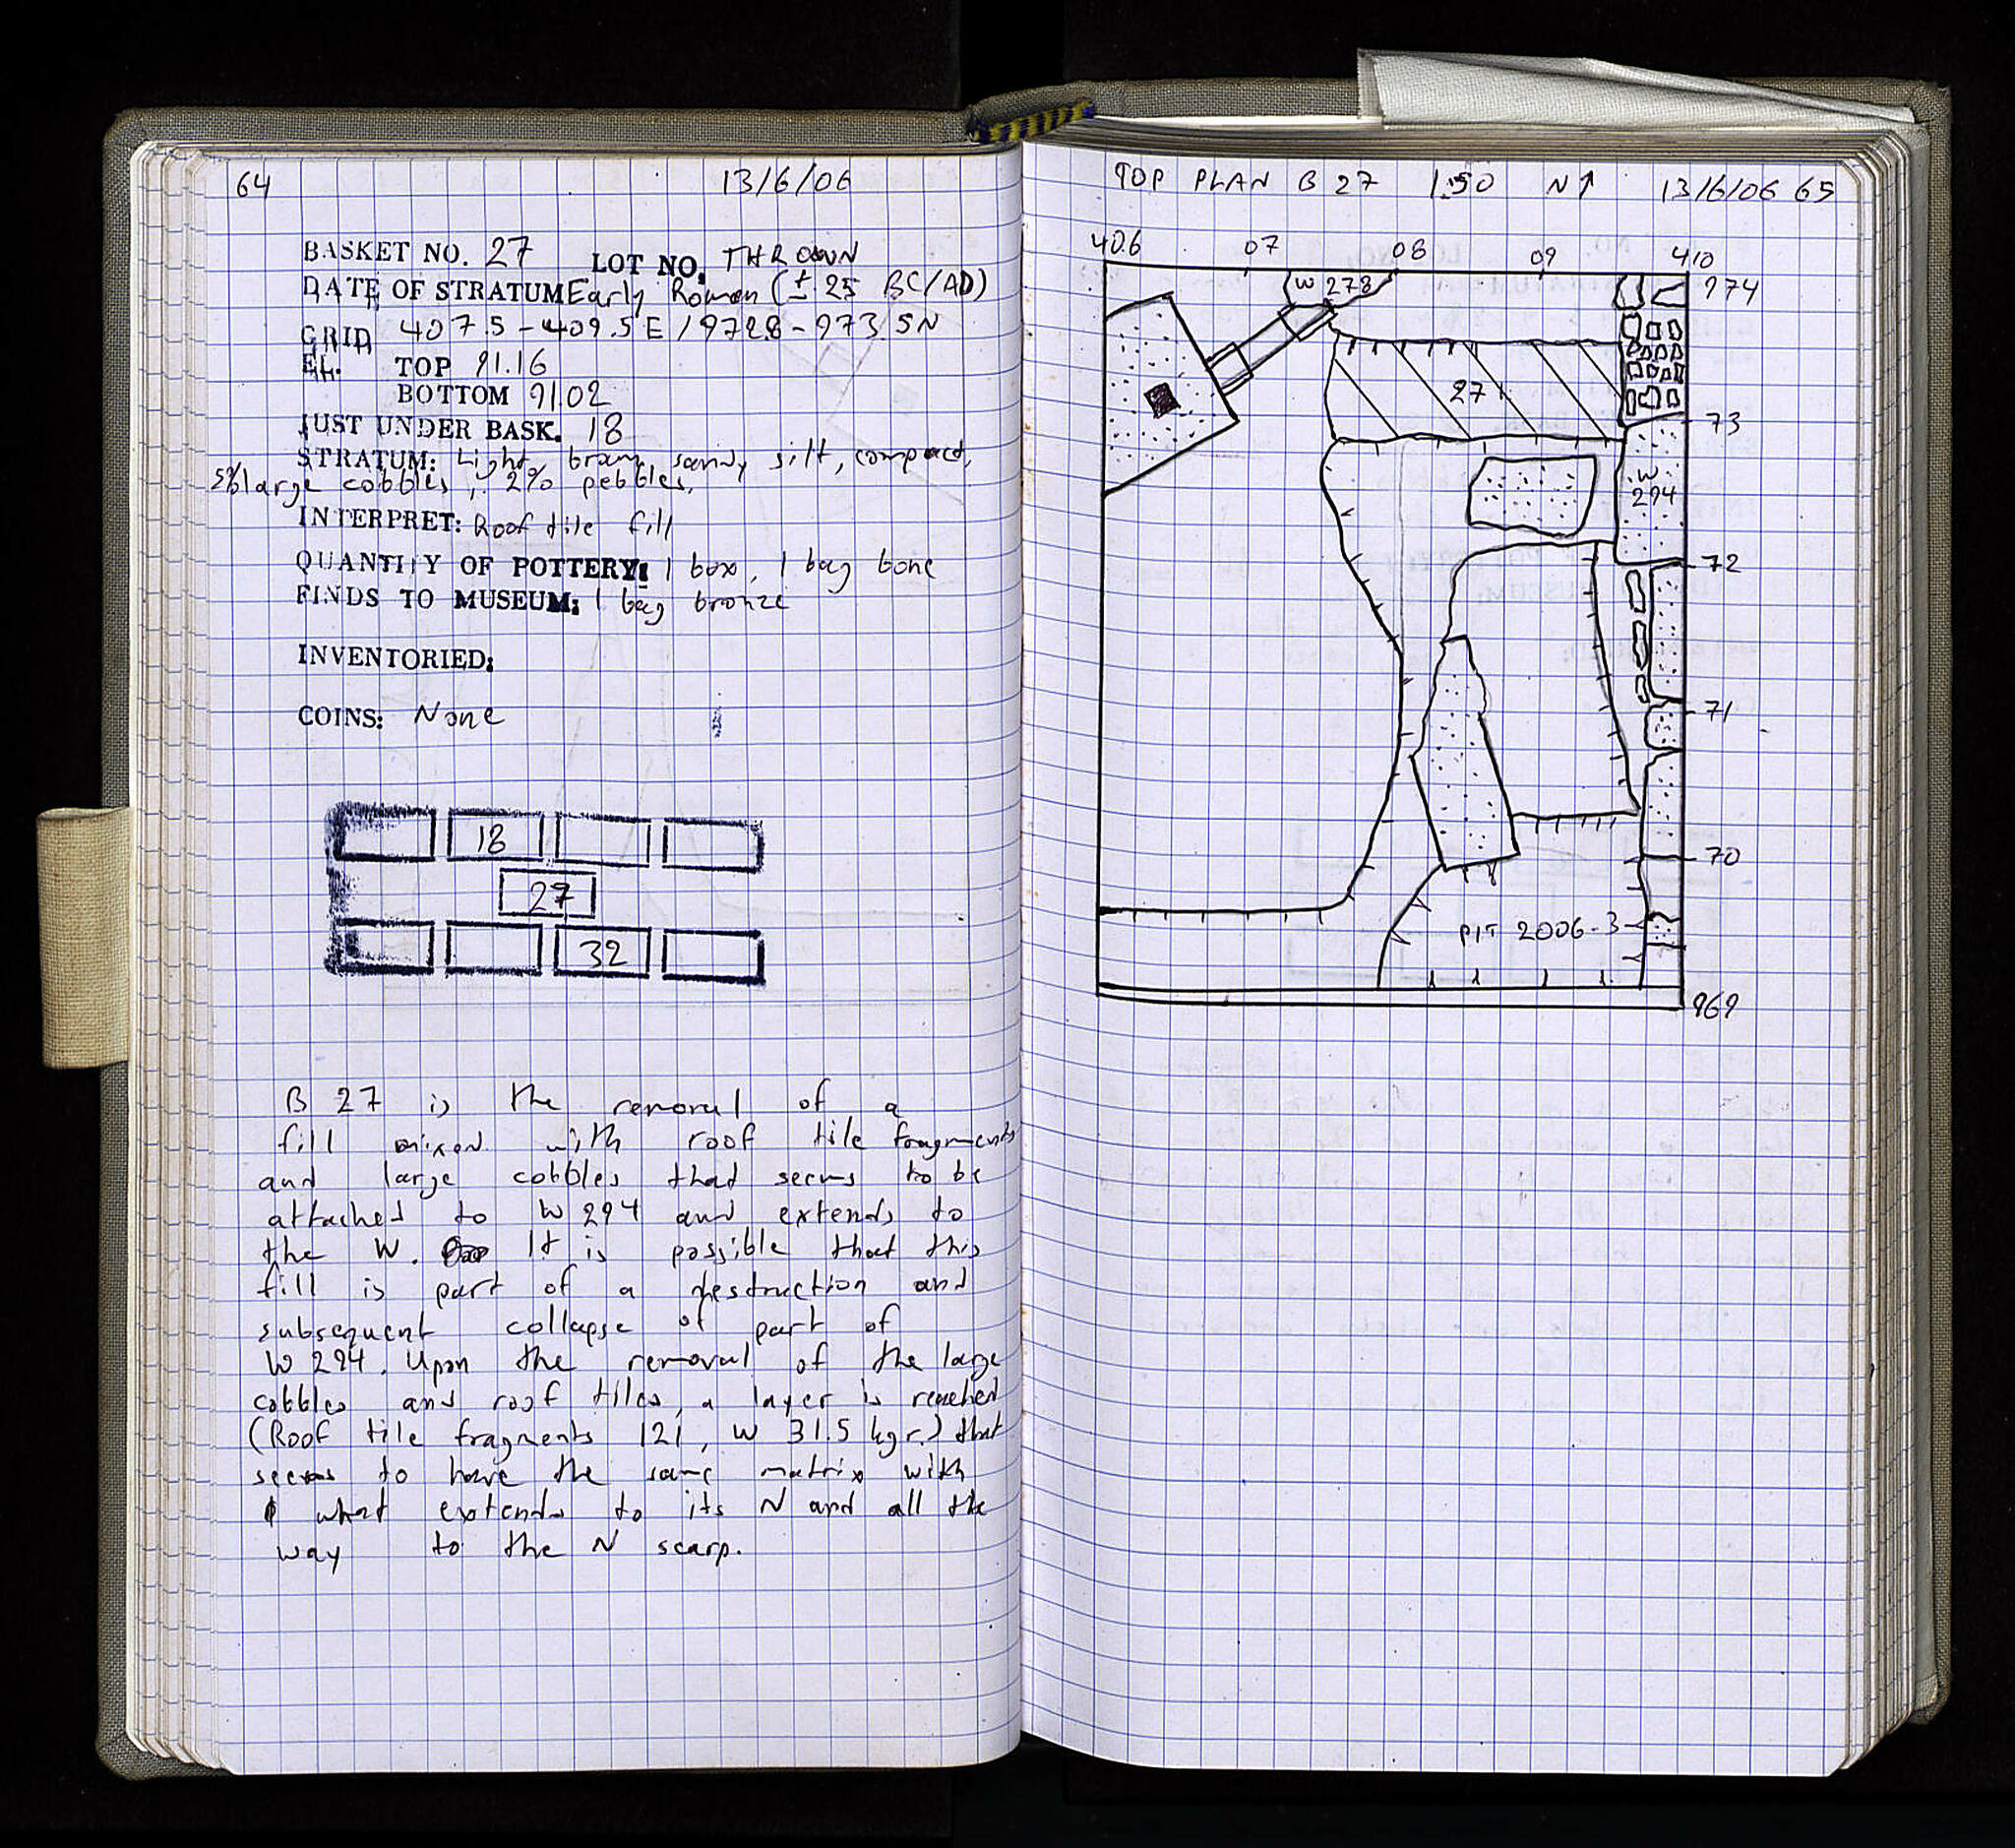 64 13/6/06
BASKET NO. 27 LOT NO. THROWN
DATE OF STRATUM Early Roman (± 25 BC/AD)
GRID 407.5-409.5E/972.8-973.5N
EL. TOP 91.16
BOTTOM 91.02
JUST UNDER BASK. 18
STRATUM: Light brown sandy silt, compact,
5% large cobbles, 2% pebbles.
INTERPRET: Roof tile fill
QUANTITY OF POTTERY: 1 box, 1 bag bone
FINDS TO MUSEUM: 1 bag bronze
INVENTORIED:
COINS: None
18
27
32
B 27 is the removal of a
fill mixed with roof tile fragments
and large cobbles that seems to be
attached to W 294 and extends to
the W. It is possible that this
fill is part of a destruction and
subsequent collapse of part of
W 294. Upon the removal of the large
cobbles and roof tiles, a layer is reached
(Roof tile fragments 121, W 31.5 kgr.) that
seems to have the same matrix with
what extends to its N and all the
way to the N scarp.
TOP PLAN B 27 1:50 N↑ 13/6/06 65
406 07 08 09 410
W 278
974
27
73
W
294
72
71
70
PIT 2006-3
969